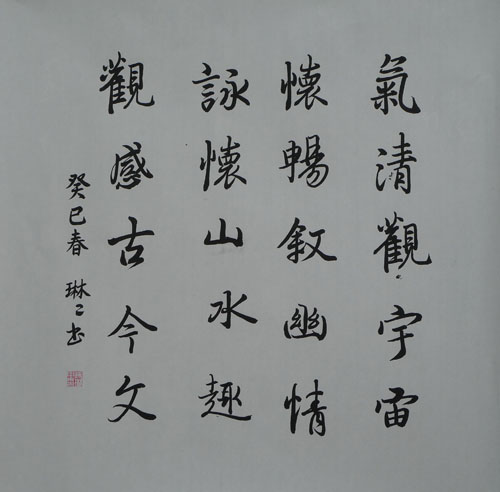 氣清觀宇宙
懷暢叙幽情
詠懷山水趣
觀感古今文
癸巳春 琳〻书